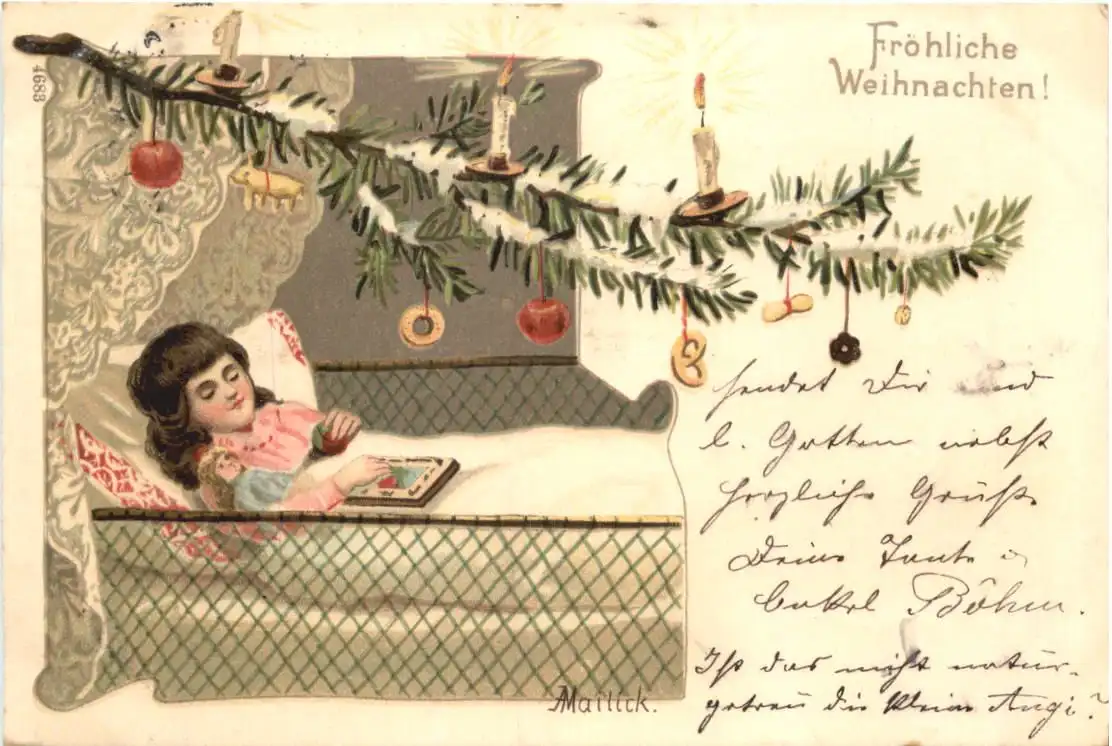 4683
Fröhliche
Weihnachten!
sendet Dir und
l. Gatten nebst
herzliche Grüße
Deine Tante u
Onkel Böhm.
Ist das nicht natur-
getreu die kleine Angi?
AMailick.